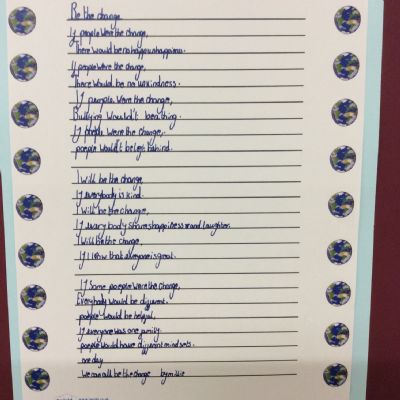 Be the change
If people were the change,
There would be no happyunhappiness.
If people were the change,
There would be no unkindness.
If people were the change,
Bullying Wouldn't be a thing.
If people were the change,
people wouldn't be left behind.
I will be the change
If everybody is kind.
I will be the change,
If every body shares happieness and laughter.
I will be the change,
If I know that everyone is great.
If some people were the change,
Everybody would be different.
people would be helpful,
If everyone was one
people would have different mindsets.
one day
We can all be the change by millie